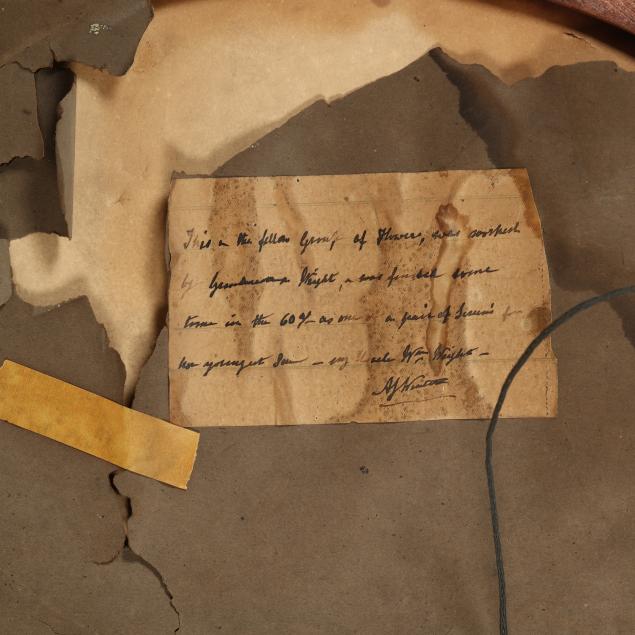 This is the fellow Group of Flowers, was worked
by Grandmama Wright, & was finished some
time in the 60s/- as one of a pair of Screens for
her youngest Son — my Uncle Wm Wright —